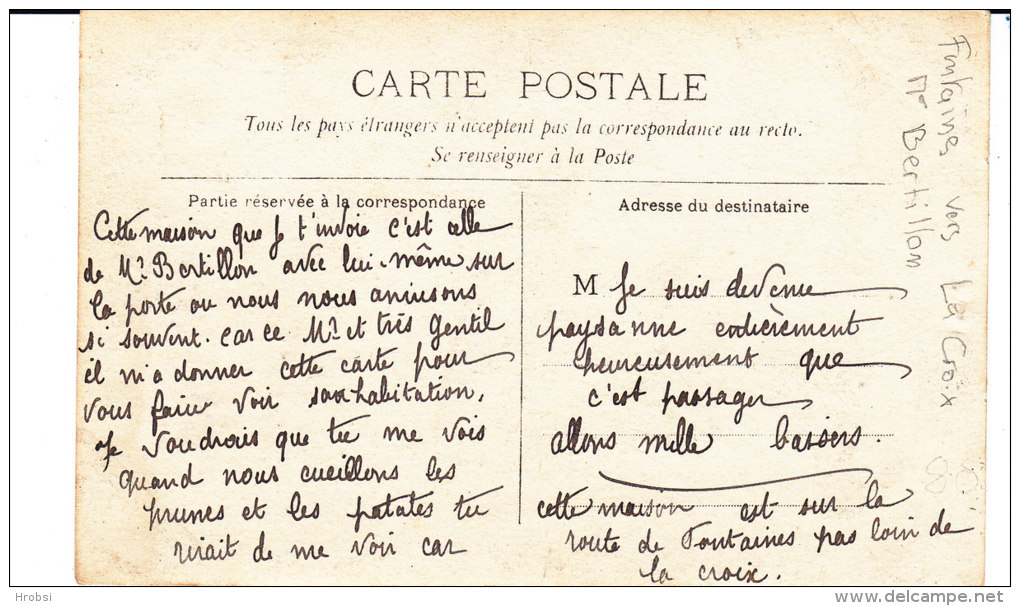 CARTE POSTALE
Tous les pays étrangers n'acceptent pas la correspondance au recto.
Se renseigner à la Poste
Partie réservée à la correspondance
Cette maison que je t'invoie c'est celle
de Mr Bertillon avec lui-même sur
la porte ou nous nous amusons
si souvent. car ce Mr et très gentil
il m'a donner cette carte pour
vous faire voir son habitation.
Je voudrais que tu me vois
quand nous cueillons les
prunes et les patates tu
rirait de me voir car
Adresse du destinataire
M Je suis devenue
paysanne entièrement
heureusement que
c'est passager
allons mille baisers.
cette maison est sur la
route de Fontaines pas loin de
la croix.
Fontaines vers La Croix
Mr Bertillon
Hrobsi
www.delcampe.net